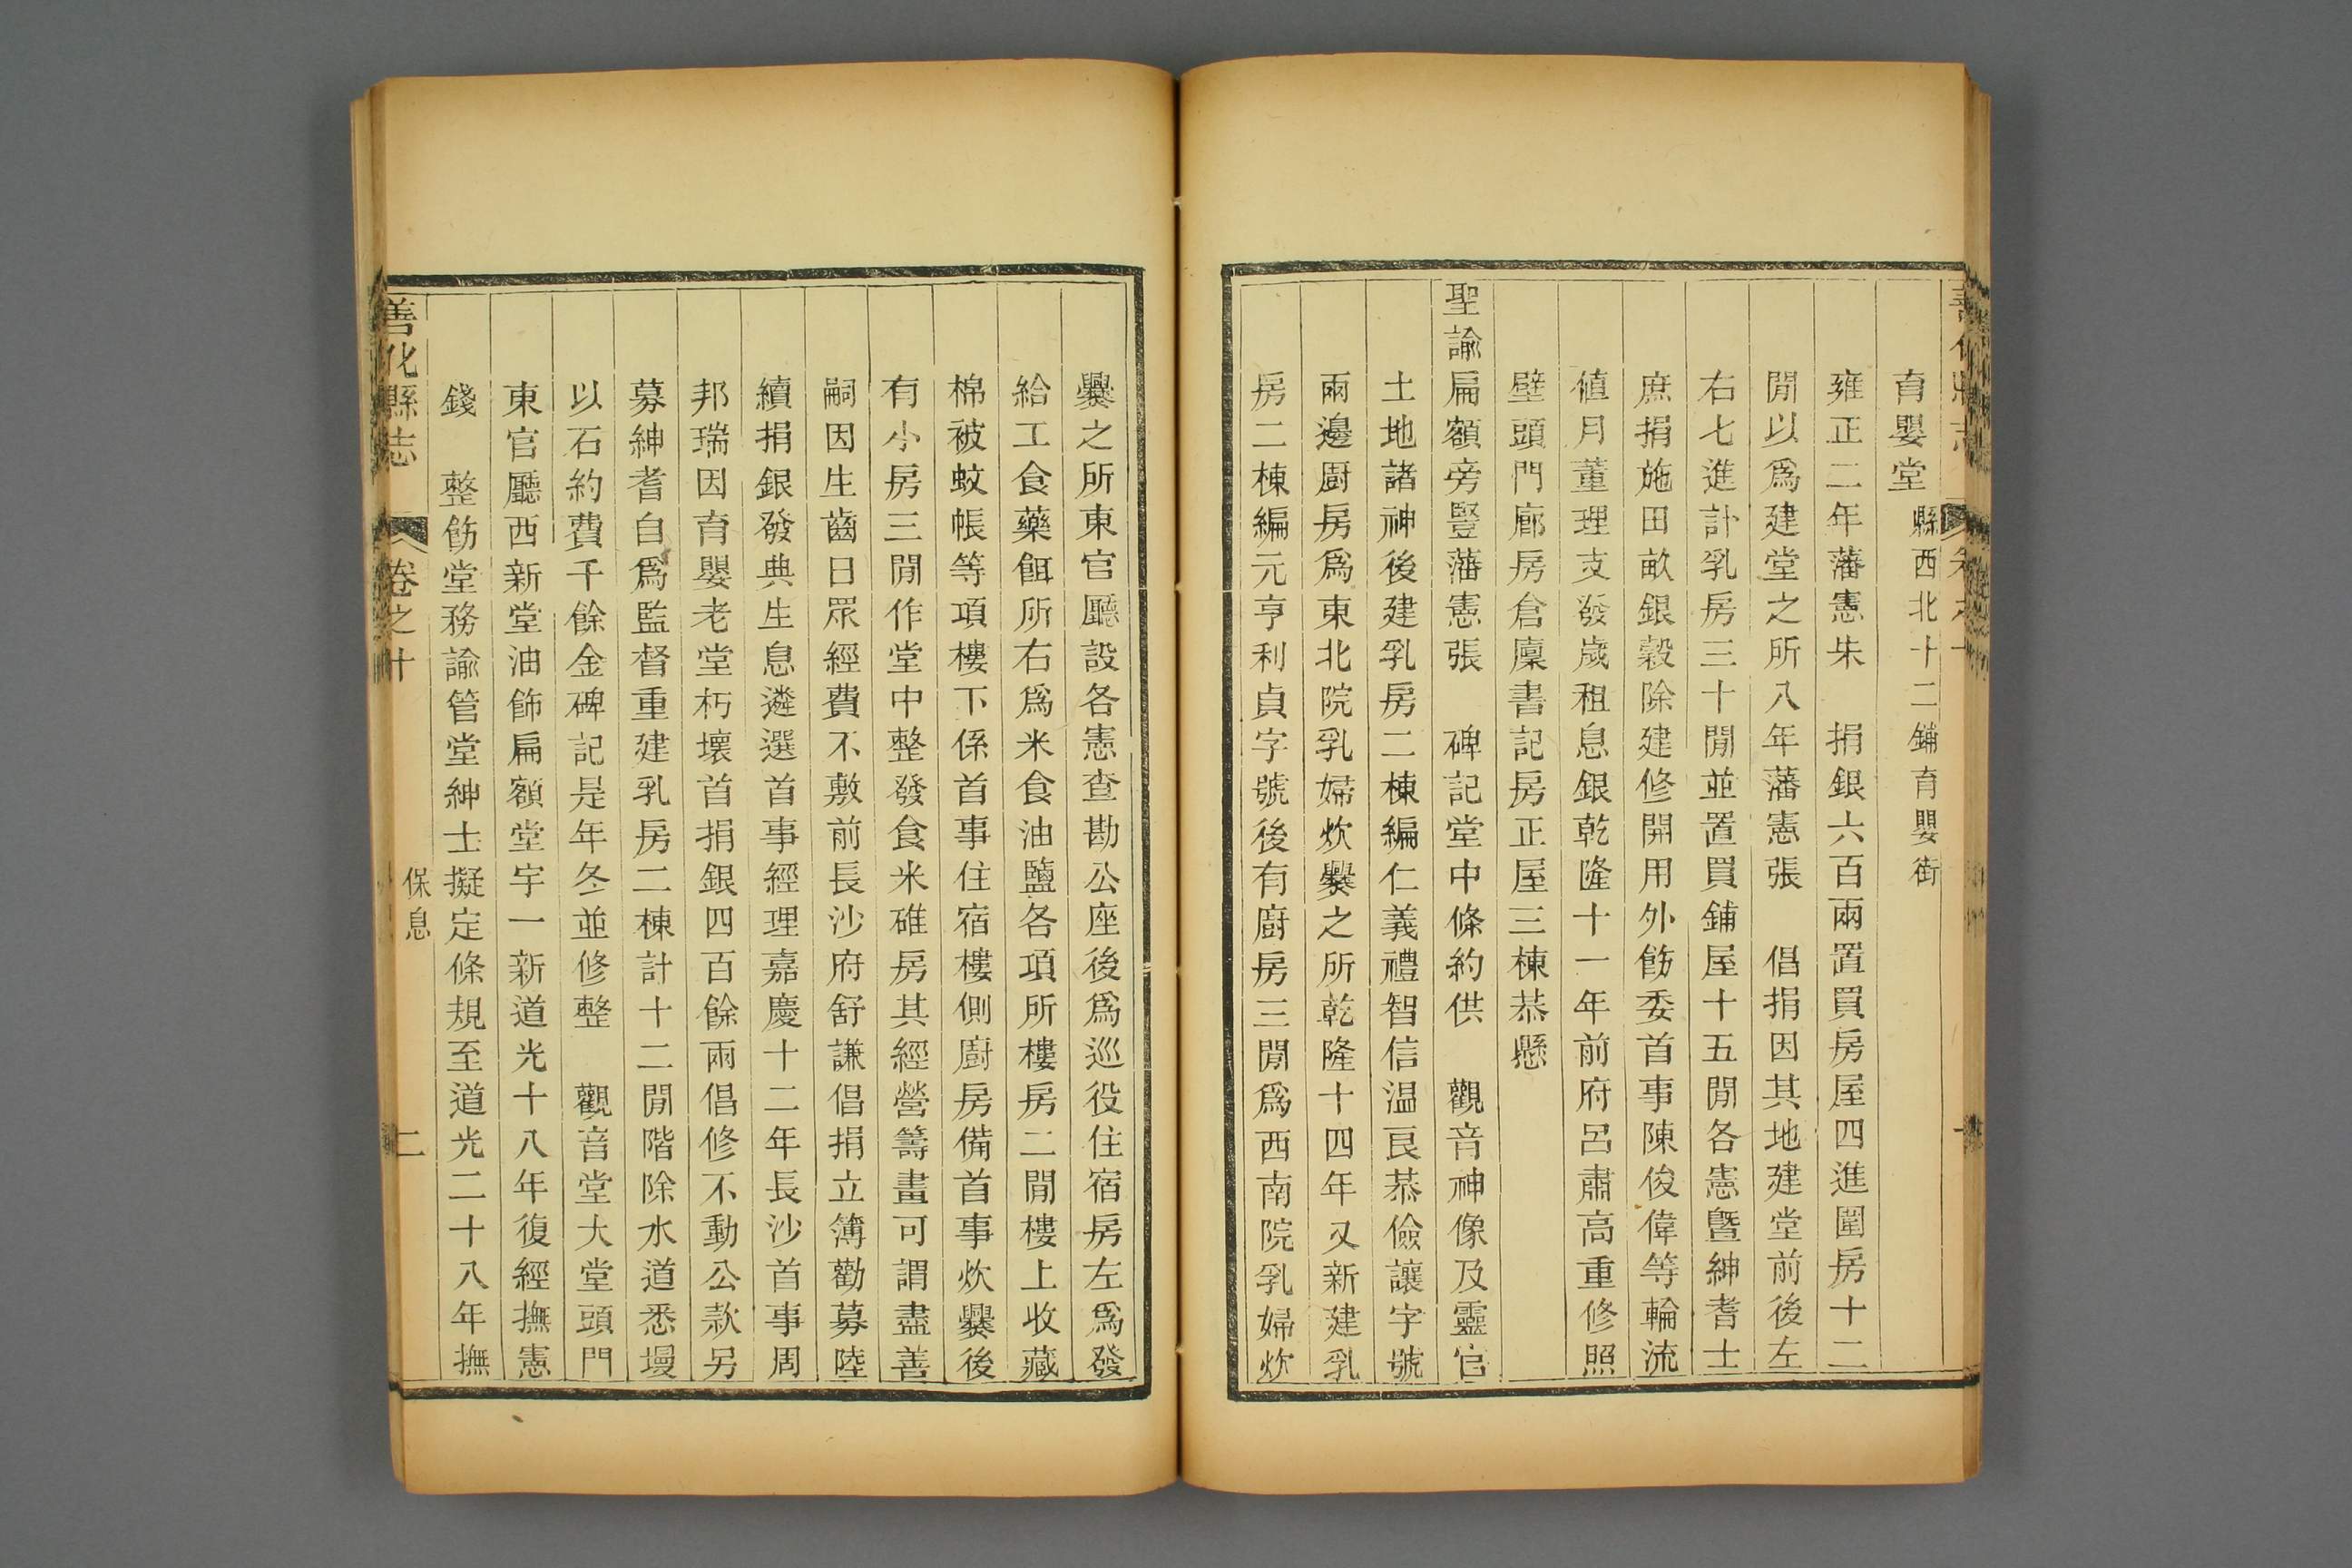 育嬰堂縣西北十二鋪育嬰街
雍正二年藩憲朱　捐銀六百兩置買房屋四進圍房十二
閒以爲建堂之所八年藩憲張　倡捐因其地建堂前後左
右七進計乳房三十閒並置買鋪屋十五閒各憲曁紳耆士
庶捐施田畝銀穀除建修開用外飭委首事陳俊偉等輪流
値月董理支發歲租息銀乾隆十一年前府呂肅高重修照
壁頭門廊房倉廩書記房正屋三棟恭懸
聖諭扁額旁豎藩憲張　碑記堂中條約供　觀音神像及靈官
土地諸神後建乳房二棟編仁義禮智信温良恭儉讓字號
兩邊厨房爲東北院乳婦炊爨之所乾隆十四年又新建乳
房二棟編元亨利貞字號後有廚房三閒爲西南院乳婦炊
爨之所東官廳設各憲查勘公座後爲巡役住宿房左爲發
給工食藥餌所右爲米食油鹽各項所樓房二閒樓上收藏
棉被蚊帳等項樓下係首事住宿樓側廚房備首事炊爨後
有小房三閒作堂中整發食米碓房其經營籌畫可謂盡善
嗣因生齒日眾經費不敷前長沙府舒謙倡捐立簿勸募陸
續捐銀發典生息遴選首事經理嘉慶十二年長沙首事周
邦瑞因育嬰老堂朽壞首捐銀四百餘兩倡修不動公款另
募紳耆自爲監督重建乳房二棟計十二閒階除水道悉墁
以石約費千餘金碑記是年冬並修整　觀音堂大堂頭門
東官廳西新堂油飾扁額堂宇一新道光十八年復經撫憲
錢　整飭堂務諭管堂紳士擬定條規至道光二十八年撫
善化縣志
卷之十
保息
二